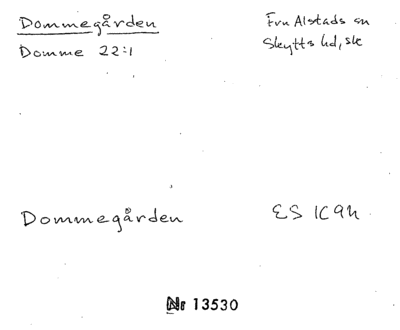 Dommegården
Domme 22:1
Fru Alstads sn
Skytts hd, sk
Dommegården
ES 1C 9h
Nr 13530